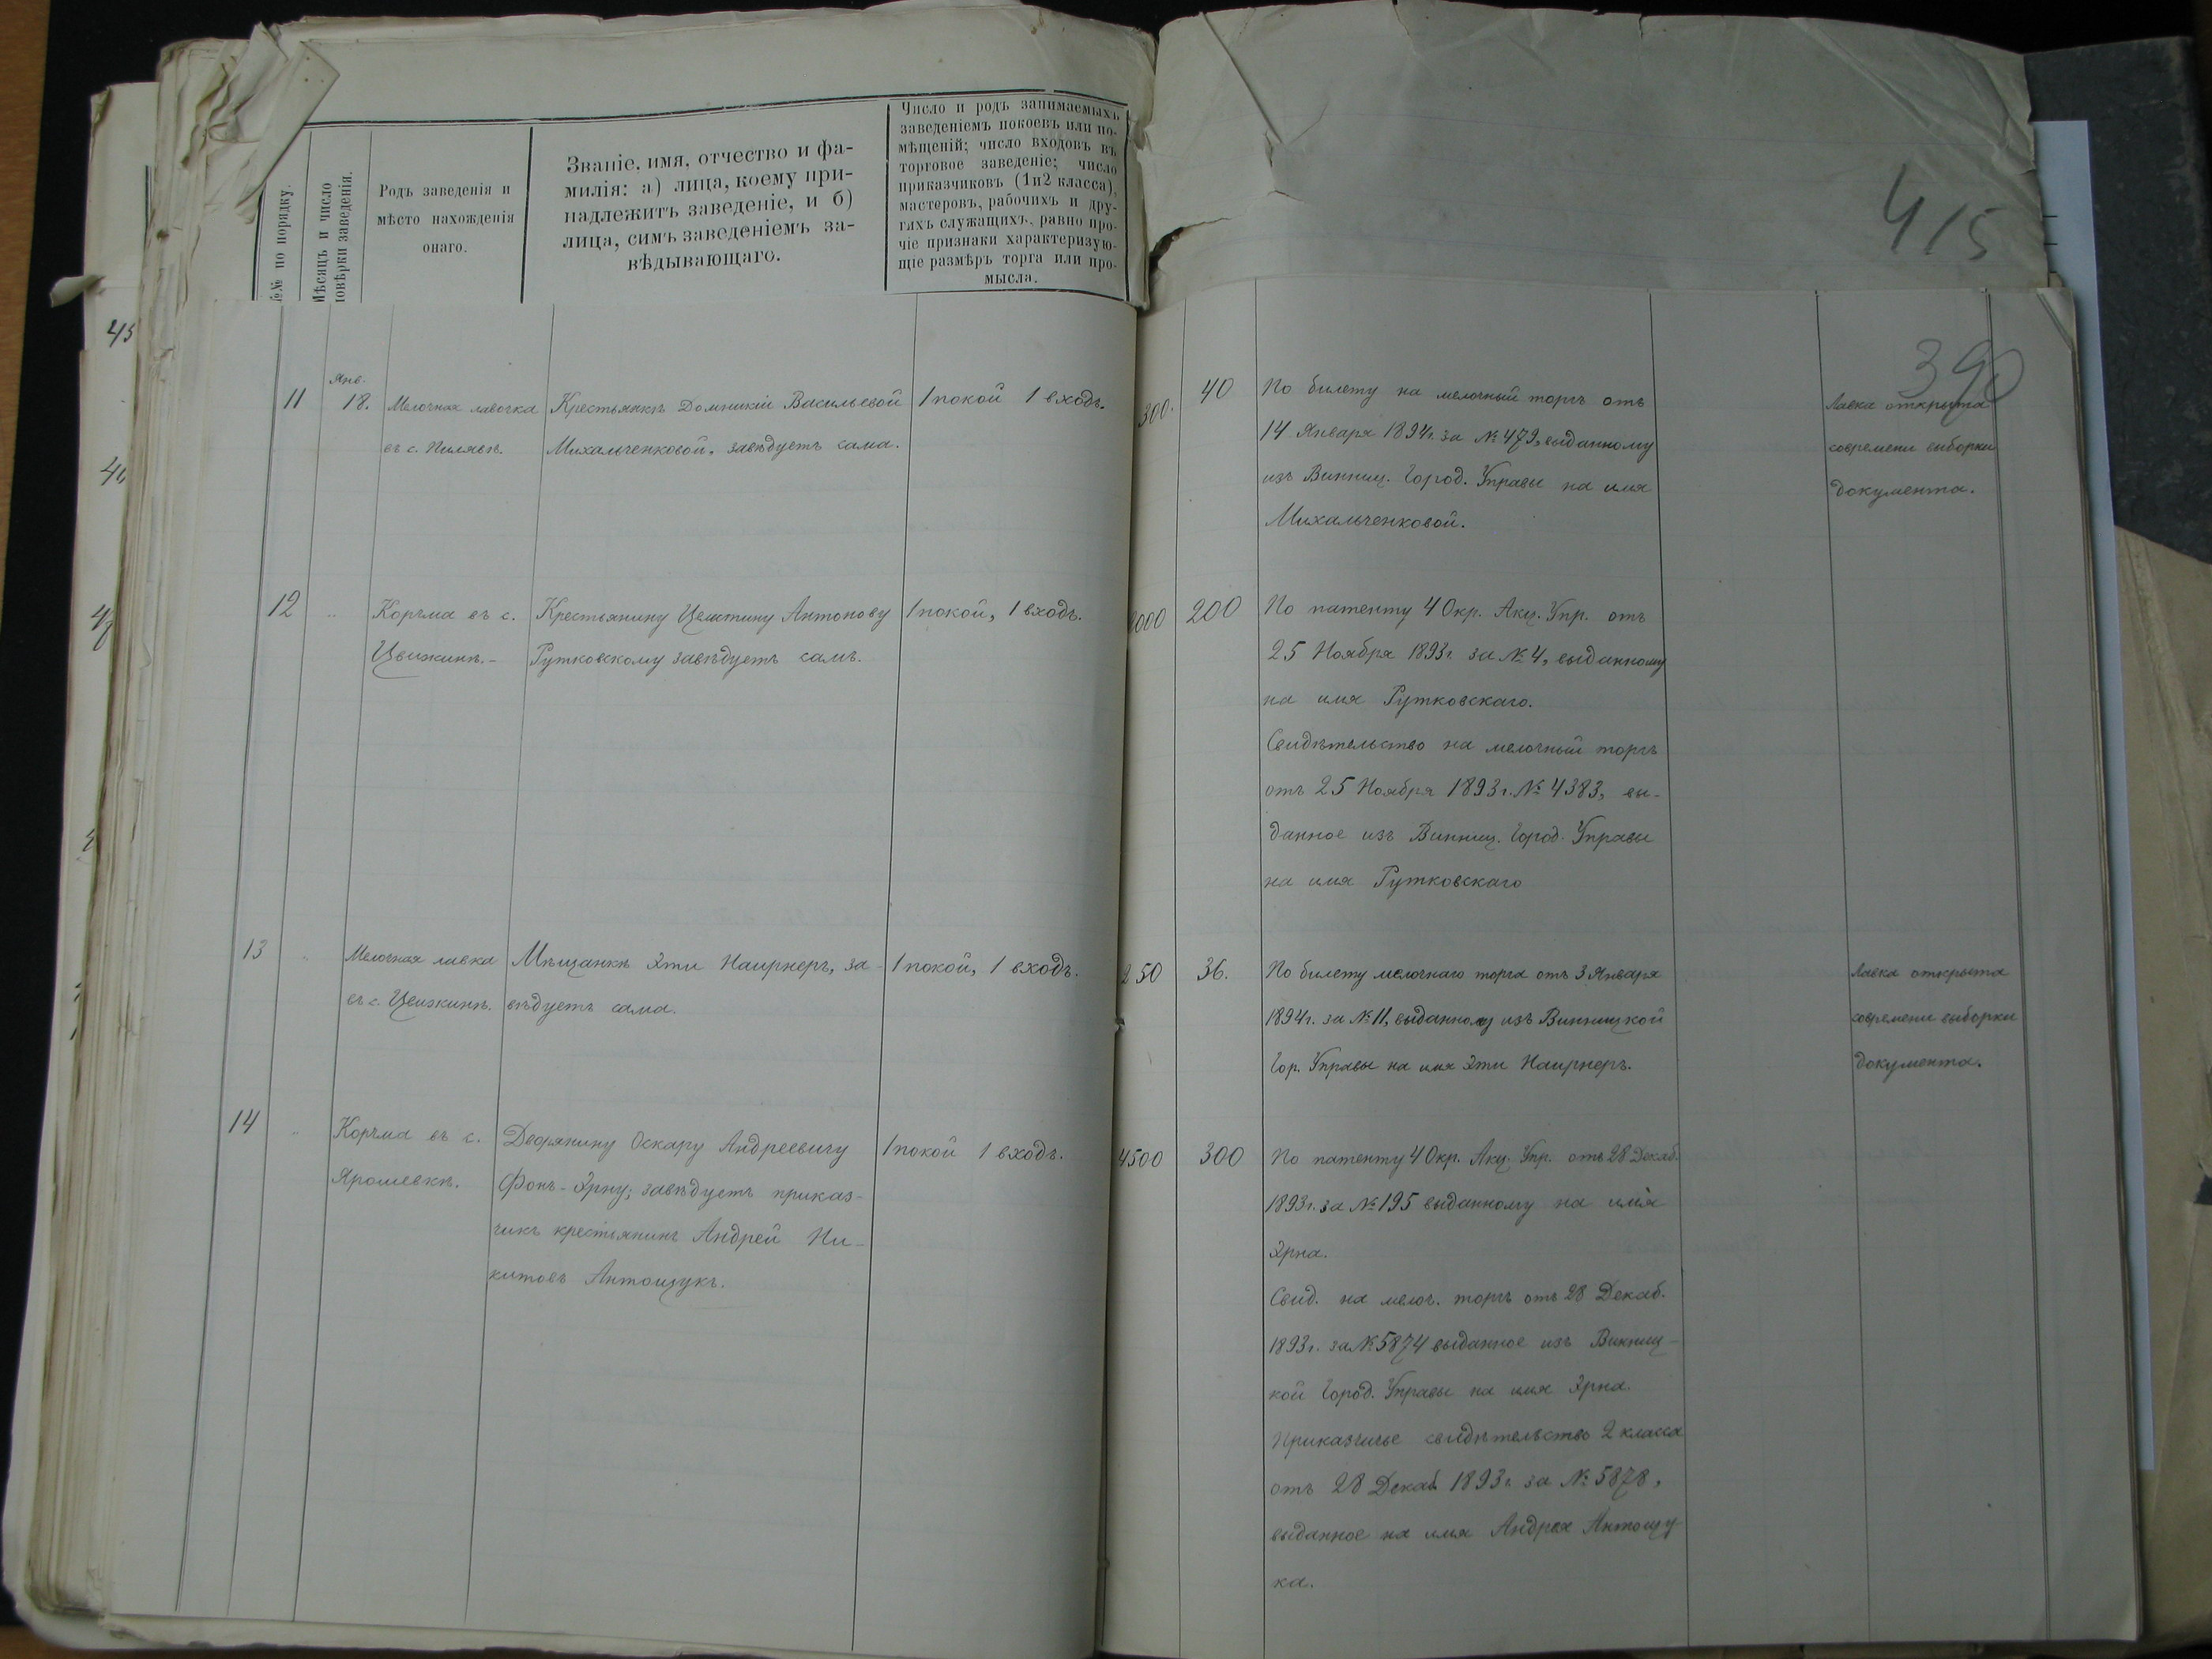 415
390
№№ по порядку.
Мѣсяцъ и число
повѣрки заведенія.
Родъ заведенія и
мѣсто нахожденія
онаго.
Званіе, имя, отчество и фа-
милія: а) лица, коему при-
надлежитъ заведеніе, и б)
лица, симъ заведеніемъ за-
вѣдывающаго.
Число и родъ занимаемыхъ
заведеніемъ покоевъ или по-
мѣщеній; число входовъ въ
торговое заведеніе; число
приказчиковъ (1и2 класса),
мастеровъ, рабочихъ и дру-
гихъ служащихъ, равно про-
чіе признаки характеризую-
щіе размѣръ торга или про-
мысла.
11
Янв.
18.
Мелочная лавочка
въ с. Пилявѣ.
Крестьянкѣ Домникіи Васильевой
Михальченковой, завѣдуетъ сама.
1 покой 1 входъ.
300.
40
По билету на мелочный торгъ отъ
14 Января 1894г. за № 479, выданному
изъ Винниц. Город. Управы на имя
Михальченковой.
Лавка открыта
современи выборки
документа.
12
Корчма въ с.
Цвижинѣ.-
Крестьянину Целестину Антонову
Рутковскому завѣдуетъ самъ.
1 покой, 1 входъ.
2000
200
По патенту 4 Окр. Акц. Упр. отъ
25 Ноября 1893г. за № 4, выданному
на имя Рутковскаго.
Свидѣтельство на мелочный торгъ
отъ 25 Ноября 1893г. № 4383, вы-
данное изъ Винниц. Город. Управы
на имя Рутковскаго
13
Мелочная лавка
въ с. Цвижинѣ.
Мѣщанкѣ Эти Наирнеръ, за-
вѣдуетъ сама.
1 покой, 1 входъ.
250
36.
По билету мелочнаго торга отъ 3 Января
1894г. за № 11, выданному изъ Винницкой
Гор. Управы на имя Эти Наирнеръ.
Лавка открыта
современи выборки
документа.
14
Корчма въ с.
Ярошевкѣ.
Дворянину Оскару Андреевичу
Фонъ-Эрну; завѣдуетъ приказ-
чикъ крестьянинъ Андрей Ни-
китовъ Антощукъ.
1 покой 1 входъ.
4500
300
По патенту 4 Окр. Акц. Упр. отъ 28 Декаб.
1893г. за № 195 выданному на имя
Эрна.
Свид. на мелоч. торгъ отъ 28 Декаб.
1893г. за № 5874 выданное изъ Винниц-
кой Город. Управы на имя Эрна.
Приказчичье свидѣтельство 2 класса
отъ 28 Декаб 1893г. за № 5878,
выданное на имя Андрея Антощу-
ка.